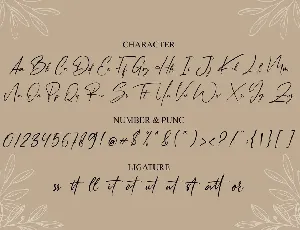 CHARACTER
Aa Bb Cc Dd Ee Ff Gg Hh Ii Jj Kk Ll Mm
Nn Oo Pp Qq Rr Ss Tt Uu Vv Ww Xx Yy Zz
NUMBER & PUNC
0123456789!@#$%^&()><?/":{}[]
LIGATURE
ss tt ll it et ut nt st att or